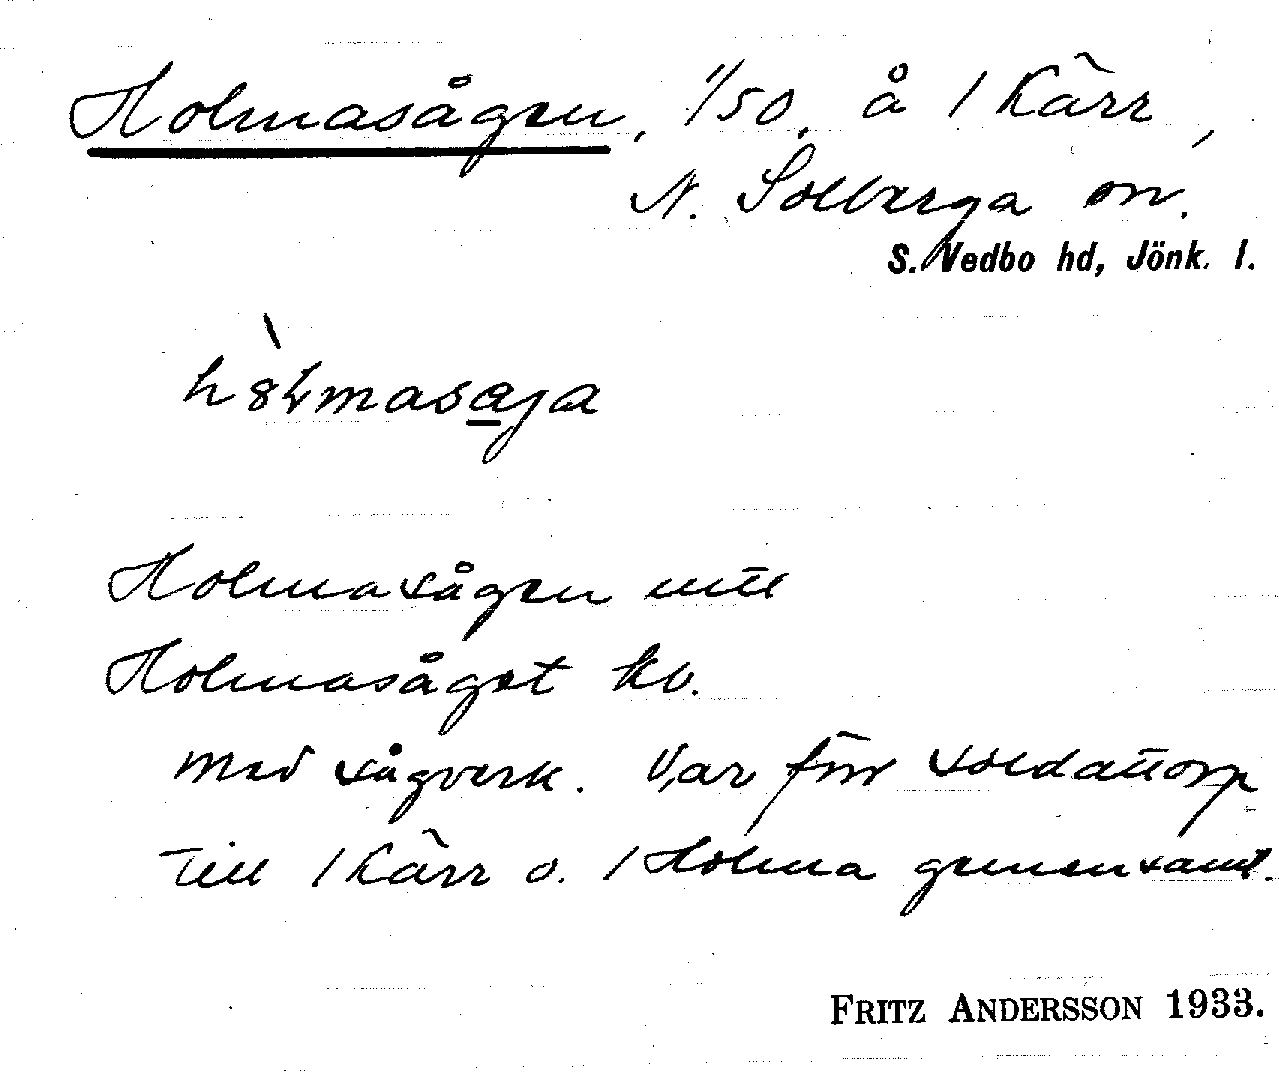 Holmasågen, 1/50, å 1 Kärr,
N. Solberga sn.
S. Vedbo hd, Jönk. l.
Holmasågen uttl
Holmasåget kb.
med sågverk. Var förr soldattorp
till 1 Kärr o. 1 Holma gemensamt.
FRITZ ANDERSSON 1933.